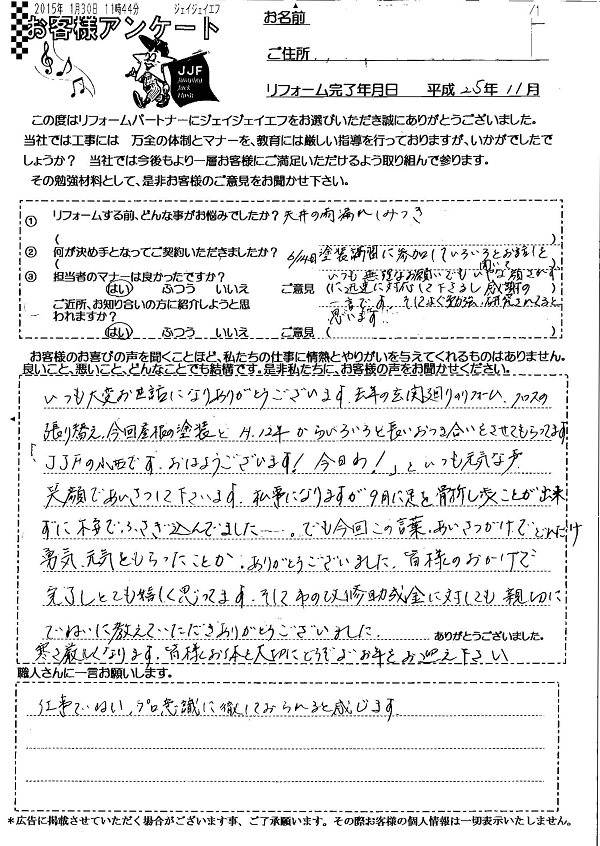 2015年 1月30日 11時44分 ジェイジェイエフ /1
お客様アンケート
JJF
Jumping
Jack
Flash
お名前
ご住所
リフォーム完了年月日 平成 25年 11月
この度はリフォームパートナーにジェイジェイエフをお選びいただき誠にありがとうございました。
当社では工事には 万全の体制とマナーを、教育には厳しい指導を行っておりますが、いかがでしたで
しょうか? 当社では今後もより一層お客様にご満足いただけるよう取り組んで参ります。
その勉強材料として、是非お客様のご意見をお聞かせ下さい。
① リフォームする前、どんな事がお悩みでしたか? 天井の雨漏れしみつき
( )
② 何が決め手となってご契約いただきましたか? 6/14日 塗装講習に参加していろいろとお話しを
( 聞いて )
③ 担当者のマナーは良かったですか? いつも無理なお願いでもいやな顔されず
はい ふつう いいえ ご意見 (に迅速に対応して下さるし感謝の
ご近所、お知り合いの方に紹介しようと思 一言です。そしてよく勉強、研究されてると
われますか? 思います。
はい ふつう いいえ ご意見 ( )
お客様のお喜びの声を聞くことほど、私たちの仕事に情熱とやりがいを与えてくれるものはありません。
良いこと、悪いこと、どんなことでも結構です。是非私たちに、お客様の声をお聞かせください。
いつも大変お世話になりありがとうございます。去年の玄関廻りのリフォーム、クロスの
張り替え、今回屋根の塗装とH.12年からいろいろと長いおつき合いをさせてもらってます
「JJFの小西です。おはようございます!今日わ!」といつも元気な声
笑顔であいさつして下さいます。私事になりますが9月に足を骨折し歩くことが出来
ずに不安でふさぎ込んでました……。でも今回この言葉、あいさつだけでどれだけ
勇気、元気をもらったことか、ありがとうございました。皆様のおかげで
完了しとても嬉しく思ってます。そして市の改修助成金に対しても親切に
ていねいに教えていただきありがとうございました。 ありがとうございました。
寒さ厳しくなります。皆様お体を大切にどうぞよいお年をお迎え下さい
職人さんに一言お願いします。
仕事ていねい、プロ意識に徹しておられると感じます。
*広告に掲載させていただく場合がございます事、ご了承願います。その際お客様の個人情報は一切表示いたしません。